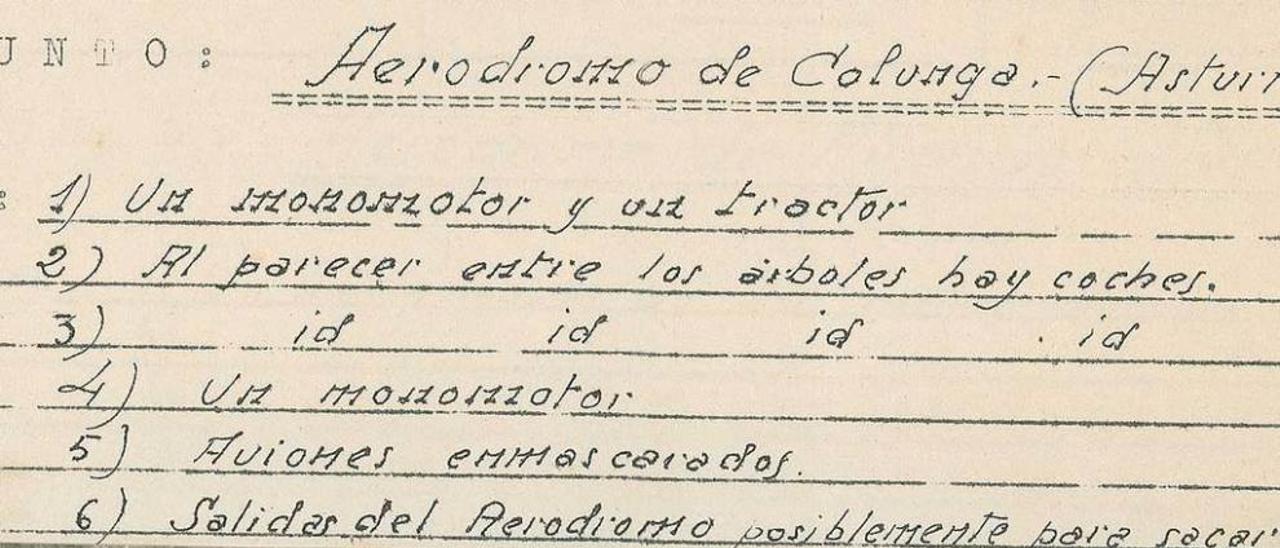 UNTO: Aerodromo de Colunga.- (Astur
1) Un monomotor y un tractor
2) Al parecer entre los árboles hay coches.
3) id id id id
4) Un monomotor
5) Aviones enmascarados.
6) Salidas del Aerodromo posiblemente para sacar